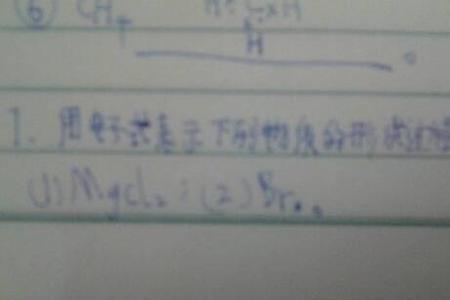 ⑥ CH₄ H:C×H
H
7. 用电子式表示下列物质的形成过程
(1) MgCl₂; (2) Br₂。